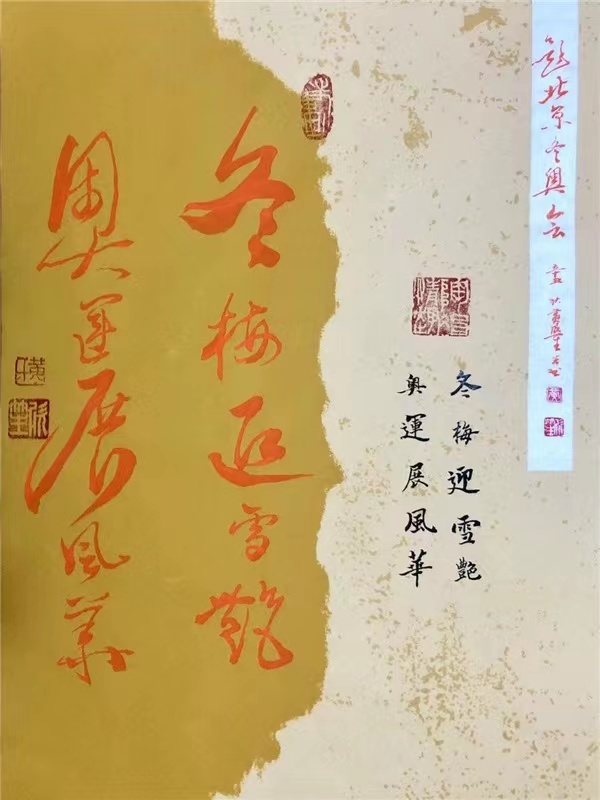 题北京冬奥会
冬梅迎雪艷
奥運展風華
冬梅迎雪艷
奥運展風華